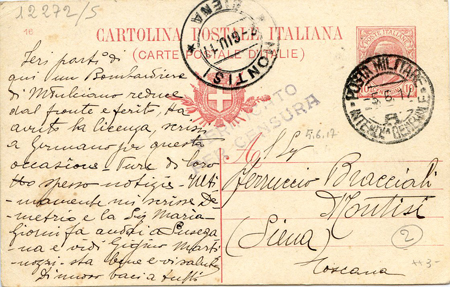 12272/5
16
CARTOLINA POSTALE ITALIANA
(CARTE POSTALE D'ITALIE)
MONTISI
SIENA
POSTA MILITARE
INTENDENZA GENERALE
CENSURA
5.6.17
Ieri partì di
qui un Bombardiere
di Montisi reduce
dal fronte e ferito, ha
avuto la licenza, scrissi
a Germano per questa
occasione. Ture di loro
spesso notizie. Ulti-
mamente mi scrisse De-
metrio e la Sig Maria
Giorni fa andai a
na e vidi Gigino Marti-
nozzi sta bene e vi saluta
Di nuovo baci a tutti
Sig
Ferruccio Bracciali
Montisi
(Siena)
Toscana
2